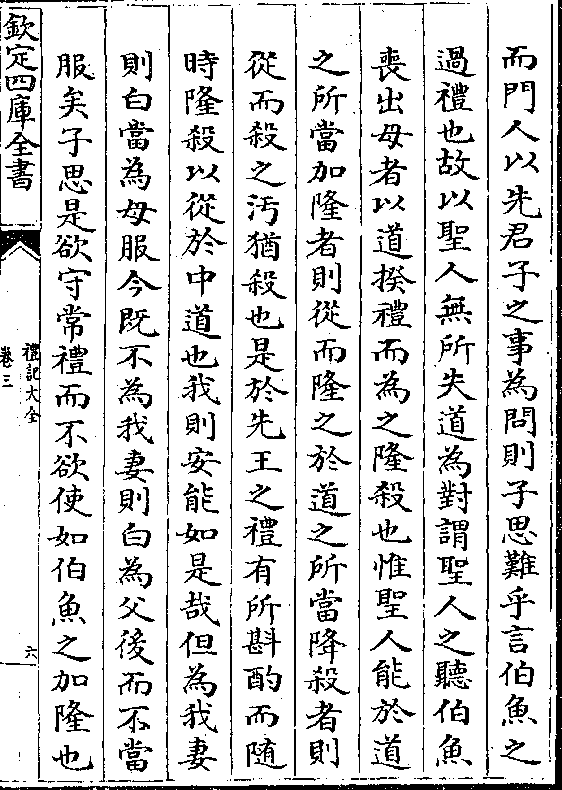 而門人以先君子之事為問則子思難乎言伯魚之
過禮也故以聖人無所失道為對謂聖人之聽伯魚
喪出母者以道揆禮而為之隆殺也惟聖人能於道
之所當加隆者則從而隆之於道之所當降殺者則
從而殺之汚猶殺也是於先王之禮有所斟酌而随
時隆殺以從於中道也我則安能如是哉但為我妻
則白當為母服今既不為我妻則白為父後而不當
服矣子思是欲守常禮而不欲使如伯魚之加隆也
欽定四庫全書
禮記大全
卷三
六